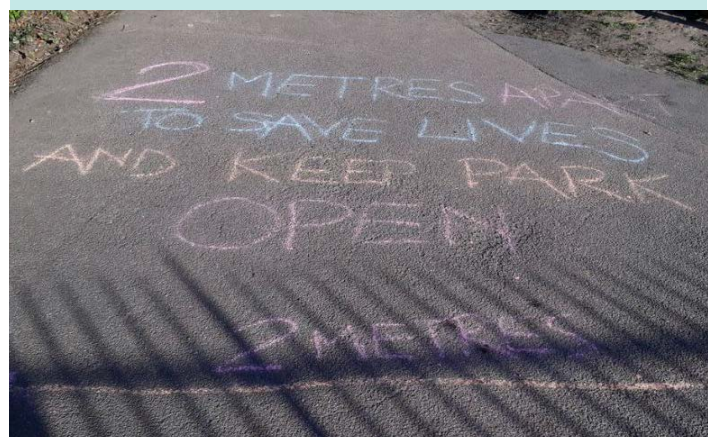 2 METRES APART
TO SAVE LIVES
AND KEEP PARK
OPEN
2 METRES